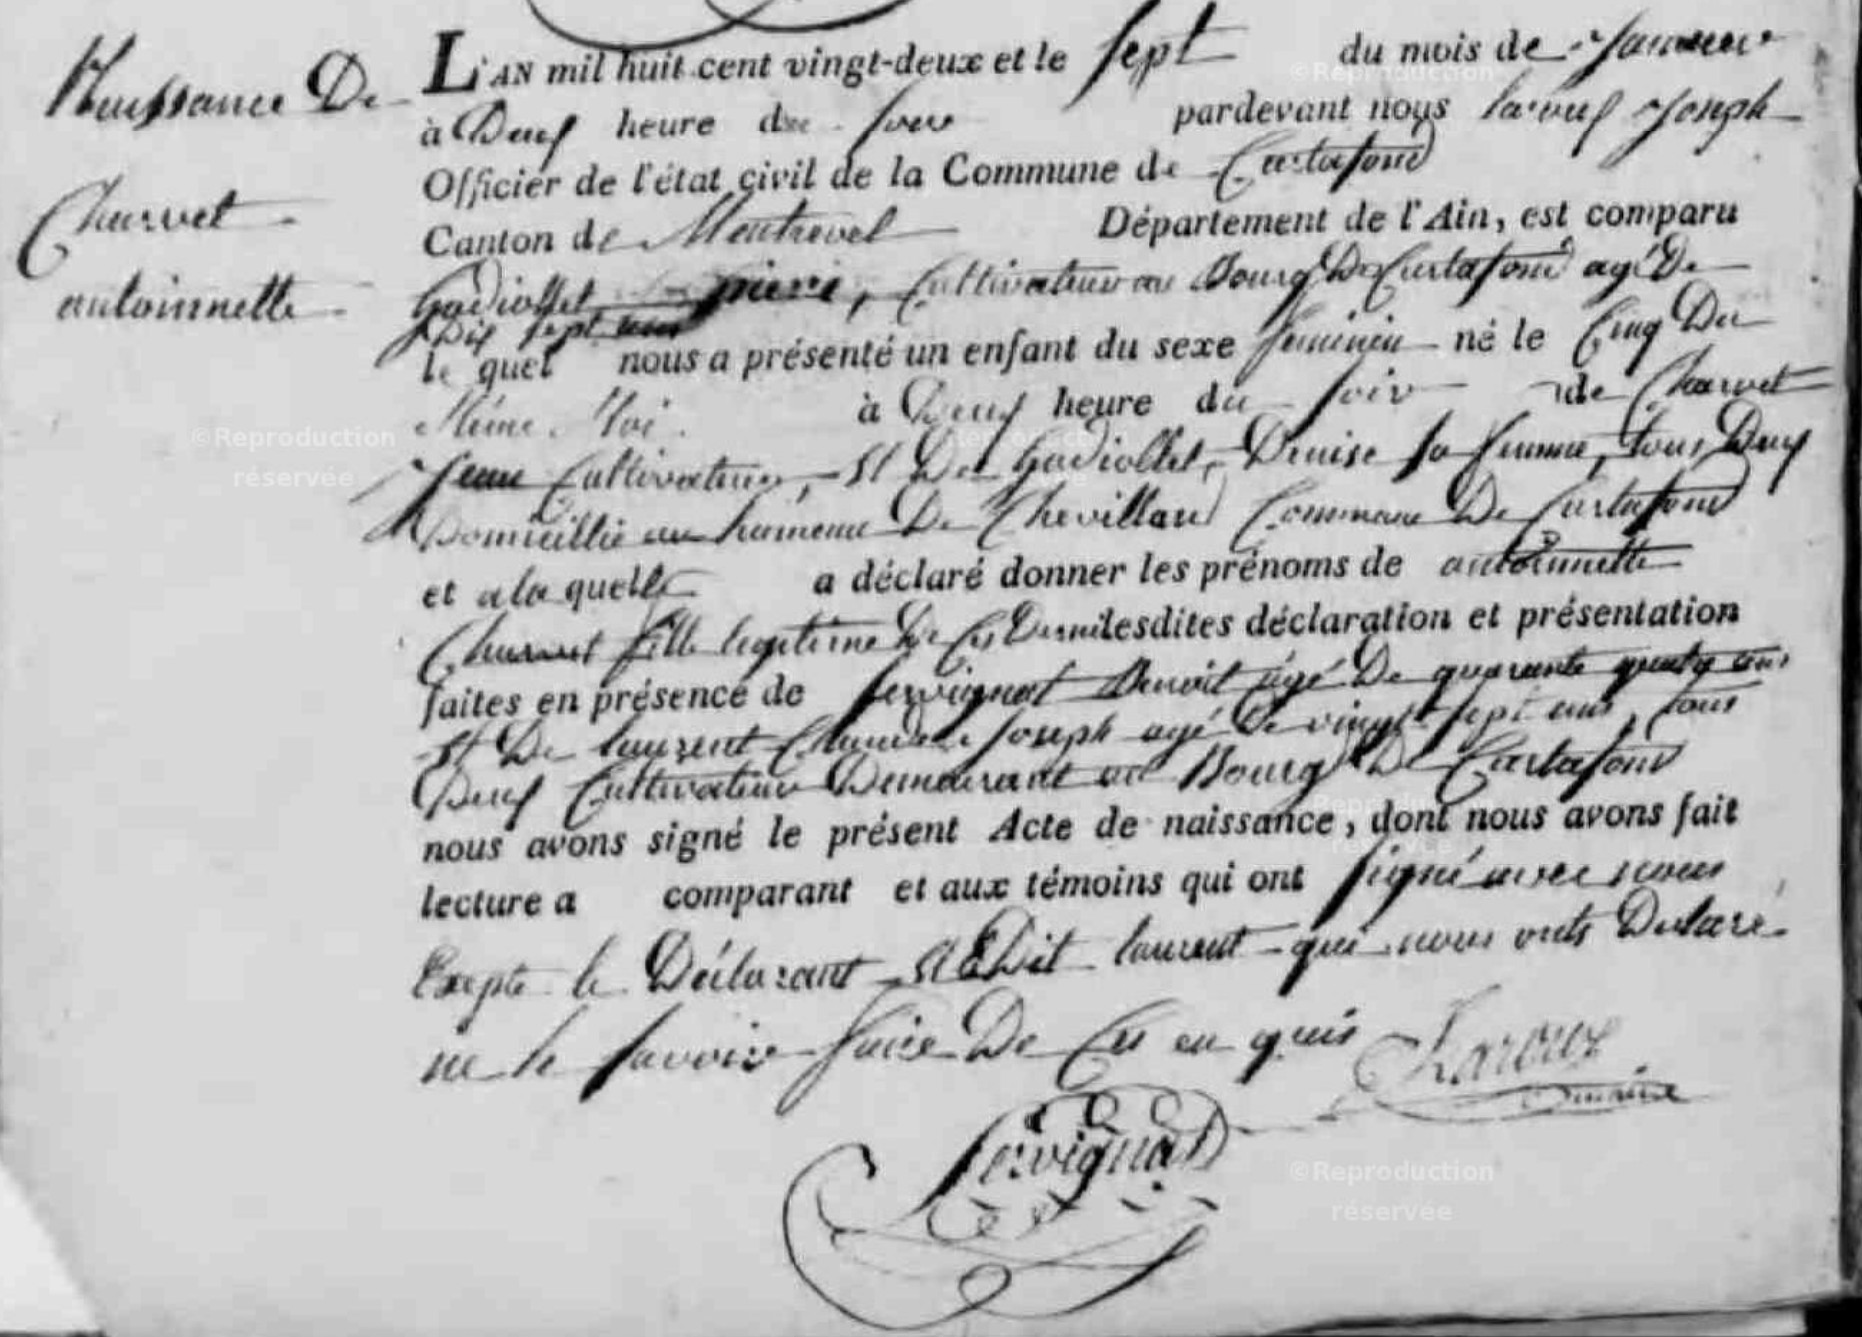 Naissance De
Charvet
antoinnette
L'AN mil huit cent vingt-deux et le sept du mois de Janvier
à Deux heure du soir pardevant nous laroux Joseph
Officier de l'état civil de la Commune de Curtafond
Canton de Montrevel Département de l'Ain, est comparu
Gadiollet pierre, Cultivateur au Bourg De Curtafond agé De
Dix sept ans
le quel nous a présenté un enfant du sexe feminin né le Cinq Du
Même Moi à Deux heure du soir de Charvet
Jean Cultivateur, et De Gadiollet Denise sa femme, tous Deux
Domicillié au hameau De Chevilland Commune De Curtafond
et a la quelle a déclaré donner les prénoms de antoinnette
Charvet fille legitime De Ces Derni lesdites déclaration et présentation
faites en présence de Servignat Benoit agé De quarante quatre ans
et De laurent Claude Joseph agé De vingt sept ans, tous
Deux Cultivateur Demeurant au Bourg De Curtafond
nous avons signé le présent Acte de naissance, dont nous avons fait
lecture a comparant et aux témoins qui ont signé avec nous
Exepte le Déclarant et Edit laurent qui nous onts Declaré
ne le savoir faire De Ce en quis
Laroux
maire
Servignat
©Reproduction
réservée
©Reproduction
réservée